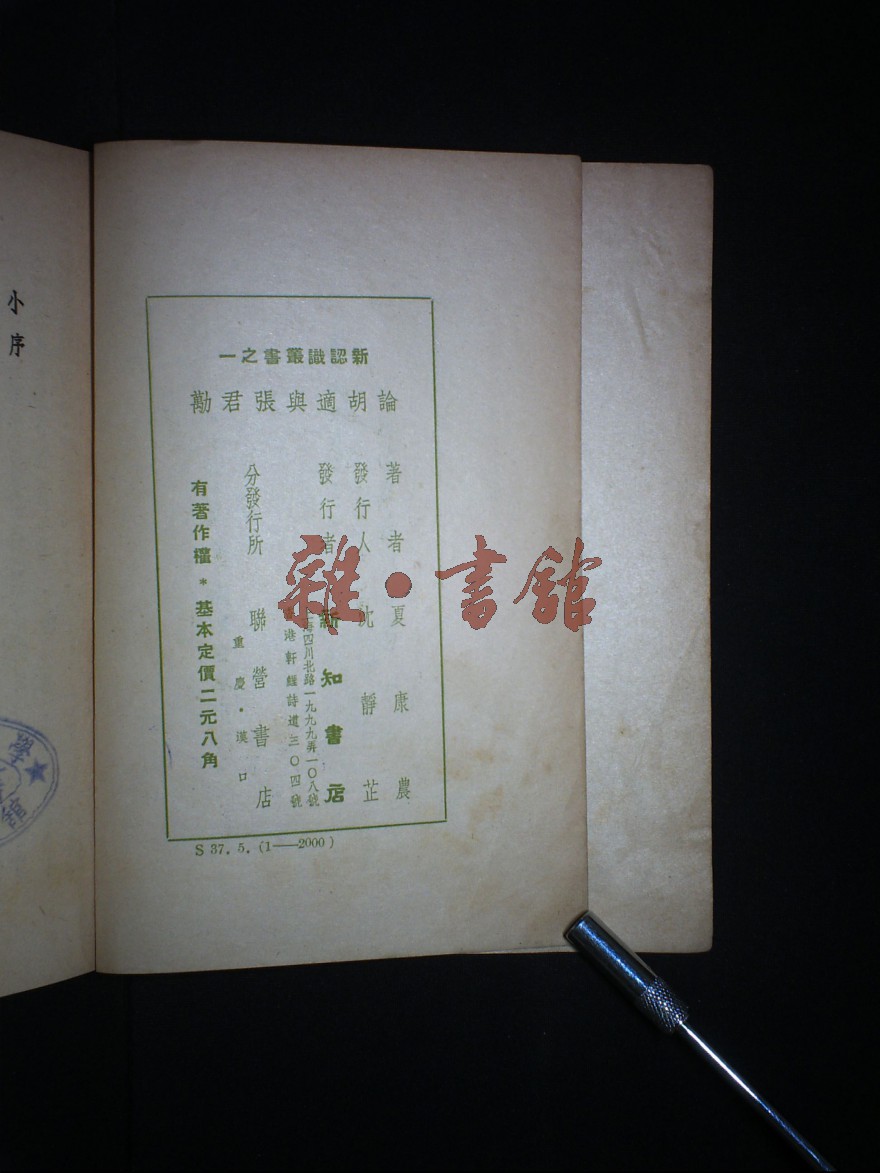 新認識叢書之一
論胡適與張君勱
著者 夏康農
發行人 沈靜芷
發行者 新知書店
上海四川北路一九九九弄一〇八號
香港軒鯉詩道三〇四號
分發行所 聯營書店
重慶·漢口
有著作權*基本定價二元八角
S 37. 5. (1——2000)
小序
雜·書館
學